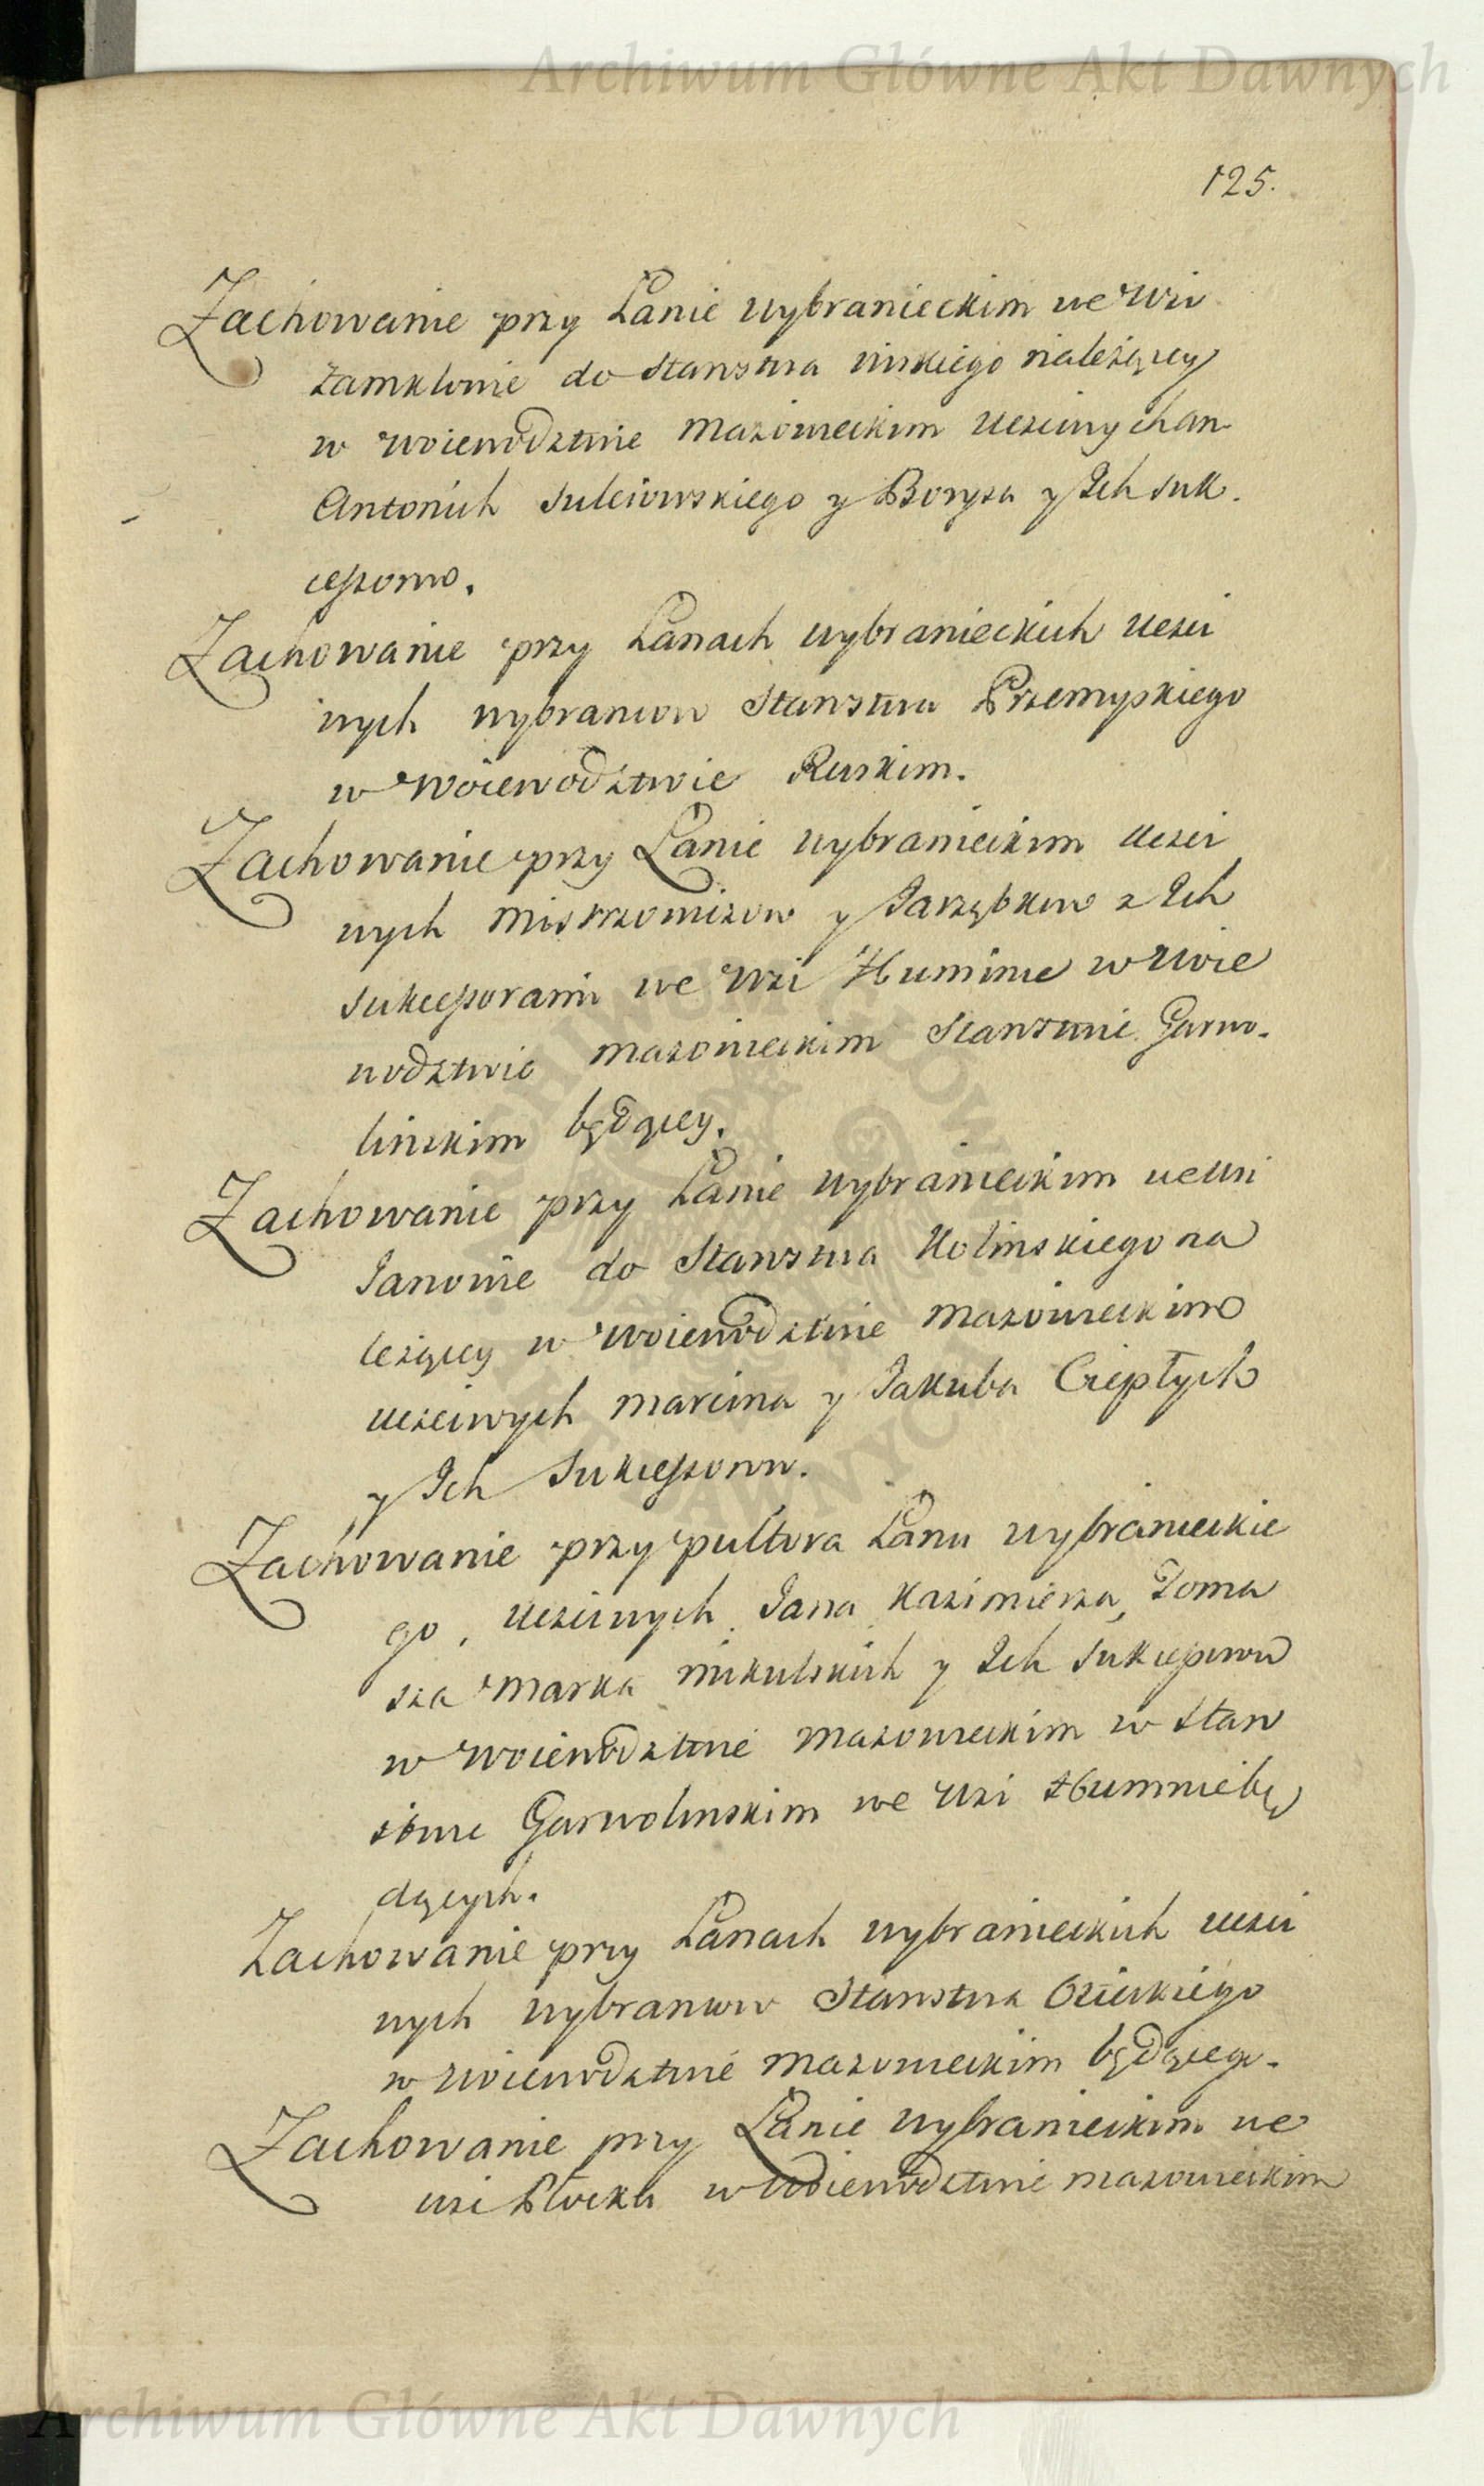 Archiwum Główne Akt Dawnych
125.
Zachowanie przy Łanie wybranieckim we Wsi
do Starostwa należącey
w Woiewodztwie Mazowieckim Uczciwych an
Antonich Sulciowskiego y Borysa y Ich Suk-
cessorow.
Zachowanie przy Łanach wybranieckich Uczci
wych wybrancow Starostwa Przemyskiego
w Woiewodztwie Ruskim.
Zachowanie przy Łanie wybranieckim Uczci
wych y Jarząbkow z Ich
Sukcessorami we Wsi Huminie w Woie
wodztwie Mazowieckim Starostwie Garwo-
linskim będącey.
Zachowanie przy Łanie wybranieckim we Wsi
Janowie do Starostwa Kolinskiego na
leżącey w Woiewodztwie Mazowieckim
Uczciwych Marcina y Jakuba Ciepłych
y Ich Sukcessorow.
Zachowanie przy pułtora Łanu wybranieckie
go, Uczciwych Jana Kazimierza, Toma
sza Marka Mikulskich y Ich Sukcessorow
w Woiewodztwie Mazowieckim w Staro
stwie Garwolinskim we Wsi będ
dących.
Zachowanie przy Łanach wybranieckich Uczci
wych wybrancow Starostwa Osieckiego
w Woiewodztwie Mazowieckim będącego.
Zachowanie przy Łanie wybranieckim we
Wsi w Woiewodztwie Mazowieckim
Archiwum Główne Akt Dawnych